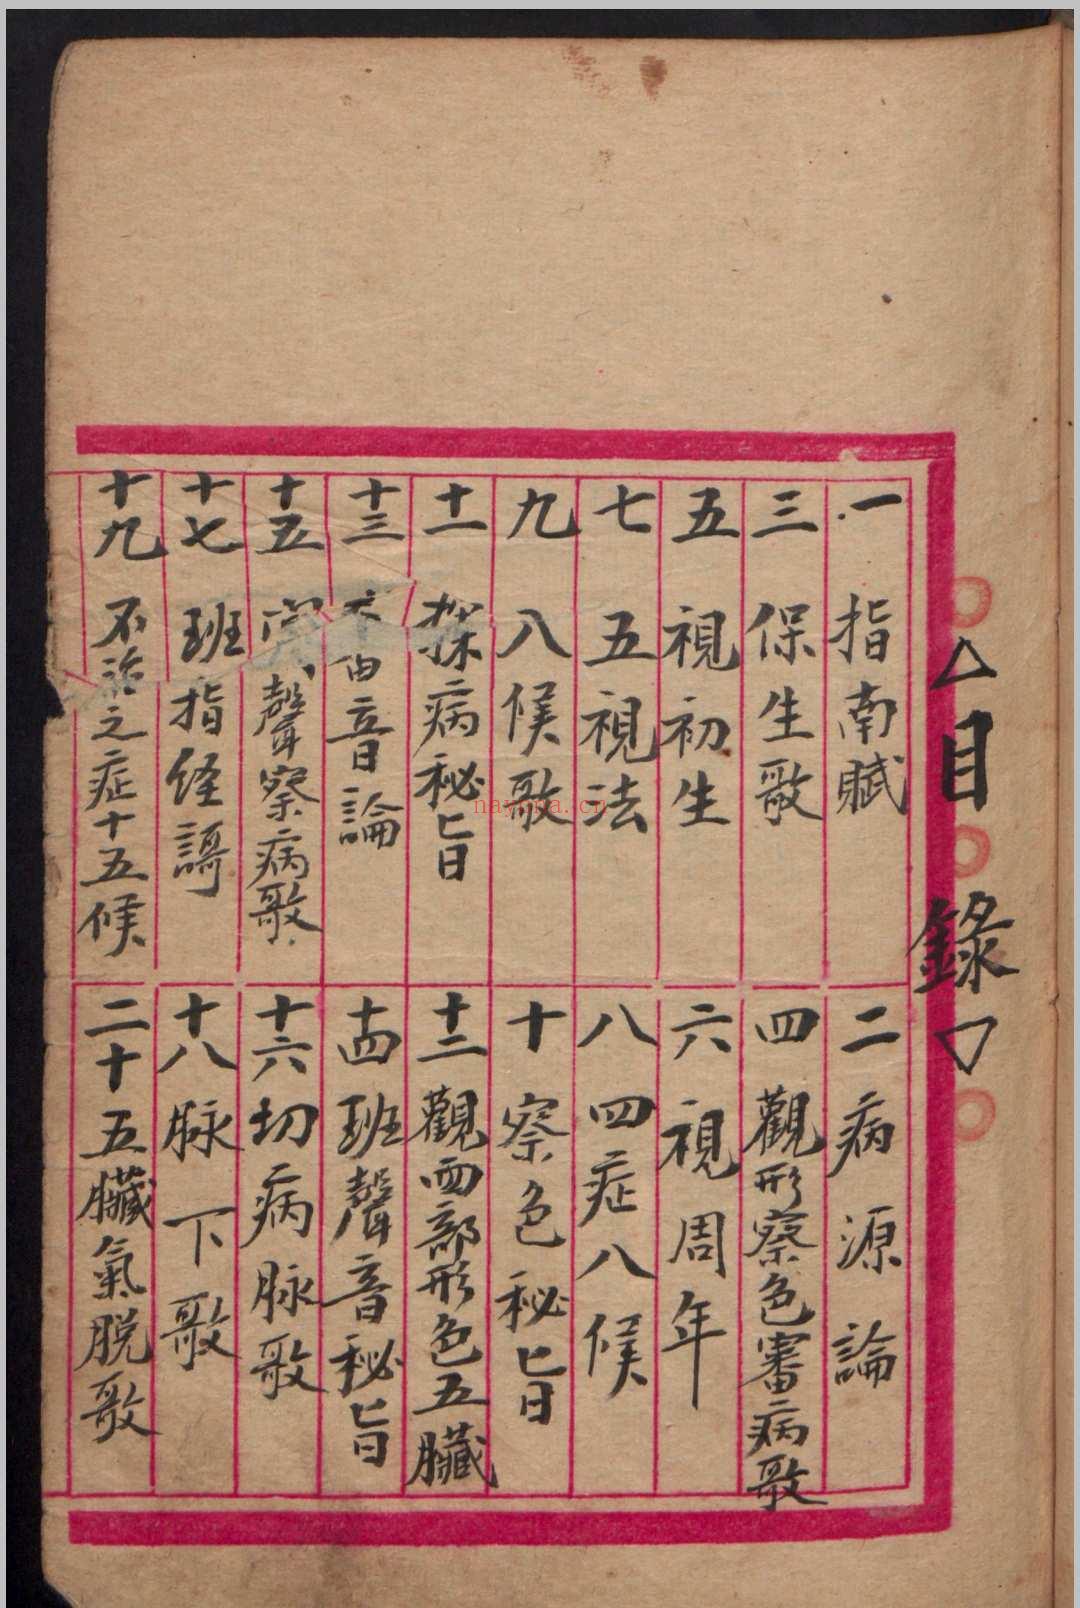 △目錄▽
一 指南賦
二 病源論
三 保生歌
四 觀形察色審病歌
五 視初生
六 視周年
七 五視法
八 四症八候
九 八候歌
十 察色秘旨
十一 探病秘旨
十二 觀面部形色五臟
十三 音論
十四 班聲音秘旨
十五 聲察病歌
十六 切病脉歌
十七 班指經謌
十八 脉下歌
十九 不治之症十五候
二十 五臟氣脱歌
nayona.cn